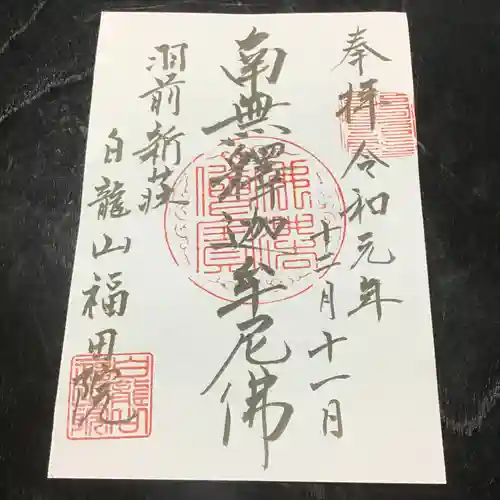 奉拝
令和元年
十二月十一日
南無釋迦牟尼佛
羽前新荘
白龍山福田院